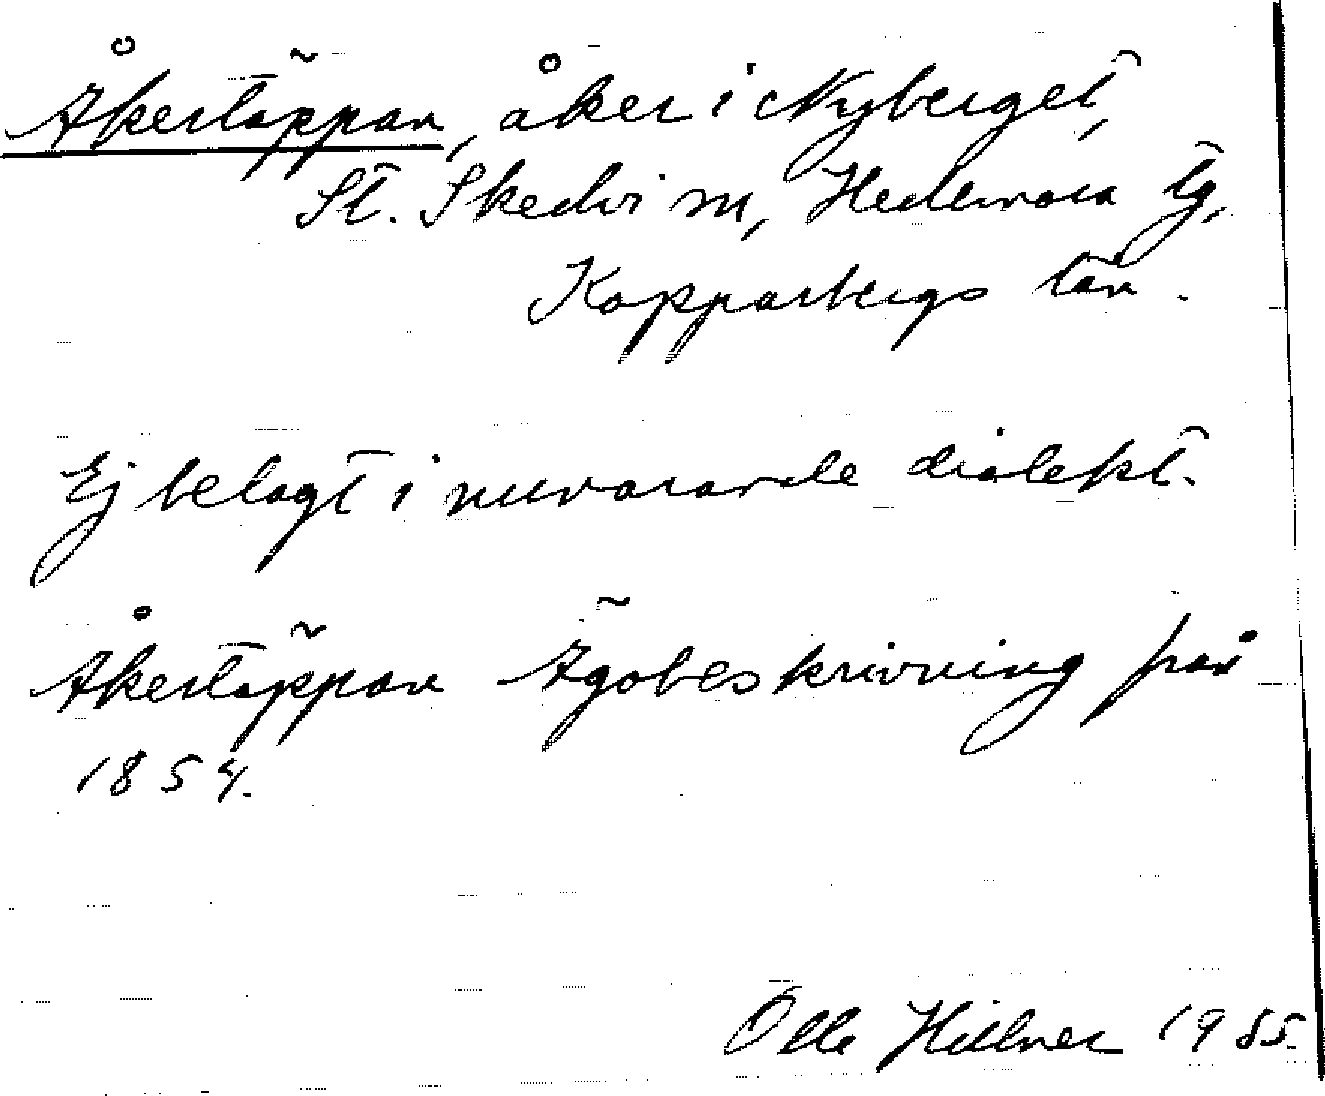 Åkertäppan, åker i Nyberget,
St. Skedvi sn, Hedemora tg,
Kopparbergs län.
Ej belagt i nuvarande dialekt.
Åkertäppan Ägobeskrivning från
1854.
Olle Hillner 1985.